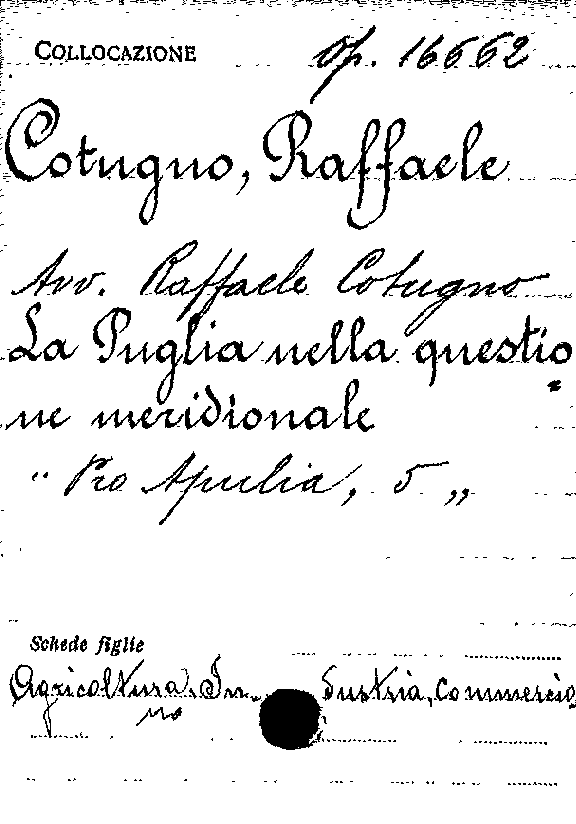 COLLOCAZIONE Op. 16662
Cotugno, Raffaele
Avv. Raffaele Cotugno
La Puglia nella questio=
ne meridionale
"Pro Apulia, 5"
Schede figlie
Agricoltura. In dustria, Commercio
no